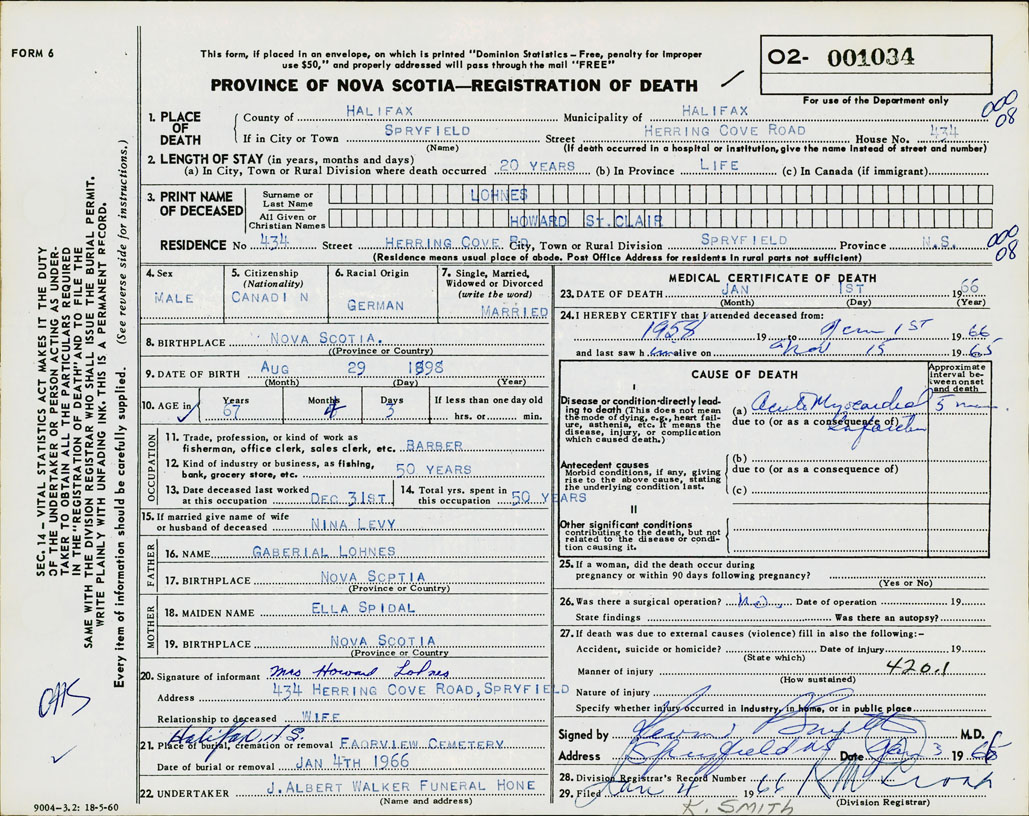 FORM 6
This form, if placed in an envelope, on which is printed "Dominion Statistics – Free, penalty for improper
use $50," and properly addressed will pass through the mail "FREE"
PROVINCE OF NOVA SCOTIA—REGISTRATION OF DEATH
O2- 001034
For use of the Department only
000
08
1. PLACE OF DEATH
County of HALIFAX Municipality of HALIFAX
If in City or Town SPRYFIELD Street HERRING COVE ROAD House No. 434
(Name) (If death occurred in a hospital or institution, give the name instead of street and number)
2. LENGTH OF STAY (in years, months and days)
(a) In City, Town or Rural Division where death occurred 20 YEARS (b) In Province LIFE (c) In Canada (if immigrant)
3. PRINT NAME OF DECEASED
Surname or Last Name LOHNES
All Given or Christian Names HOWARD St.CLAIR
RESIDENCE No 434 Street HERRING COVE RD City, Town or Rural Division SPRYFIELD Province N.S.
(Residence means usual place of abode. Post Office Address for residents in rural parts not sufficient)
000
08
4. Sex
MALE
5. Citizenship
(Nationality)
CANADI N
6. Racial Origin
GERMAN
7. Single, Married, Widowed or Divorced
(write the word)
MARRIED
8. BIRTHPLACE NOVA SCOTIA.
((Province or Country)
9. DATE OF BIRTH AUG 29 1898
(Month) (Day) (Year)
10. AGE in Years 67 Months 4 Days 3 If less than one day old
hrs. or min.
OCCUPATION
11. Trade, profession, or kind of work as
fisherman, office clerk, sales clerk, etc. BARBER
12. Kind of industry or business, as fishing,
bank, grocery store, etc 50 YEARS
13. Date deceased last worked
at this occupation DEC.31ST.
14. Total yrs. spent in
this occupation 50 YEARS
15. If married give name of wife
or husband of deceased NINA LEVY
FATHER
16. NAME GABERIAL LOHNES
17. BIRTHPLACE NOVA SCPTIA
(Province or Country)
MOTHER
18. MAIDEN NAME ELLA SPIDAL
19. BIRTHPLACE NOVA SCOTIA
(Province or Country)
20. Signature of informant Mrs Howard Lohnes
Address 434 HERRING COVE ROAD,SPRYFIELD
Relationship to deceased WIFE
Halifax N.S.
21. Place of burial, cremation or removal FAORVIEW CEMETERY
Date of burial or removal JAN 4TH 1966
22. UNDERTAKER J.ALBERT WALKER FUNERAL HONE
(Name and address)
MEDICAL CERTIFICATE OF DEATH
23. DATE OF DEATH JAN 1ST 1966
(Month) (Day) (Year)
24. I HEREBY CERTIFY that I attended deceased from:
1958 19 to Jan 1ST 1966
and last saw h im alive on Nov 15 1965
CAUSE OF DEATH
Approximate interval between onset and death
I
Disease or condition directly leading to death (This does not mean the mode of dying, e.g., heart failure, asthenia, etc. It means the disease, injury, or complication which caused death.)
(a) Acute Myocardial 5 min
due to (or as a consequence of)
Infarction
Antecedent causes
Morbid conditions, if any, giving rise to the above cause, stating the underlying condition last.
(b)
due to (or as a consequence of)
(c)
II
Other significant conditions
contributing to the death, but not related to the disease or condition causing it.
25. If a woman, did the death occur during
pregnancy or within 90 days following pregnancy?
(Yes or No)
26. Was there a surgical operation? No. Date of operation 19
State findings Was there an autopsy?
27. If death was due to external causes (violence) fill in also the following:–
Accident, suicide or homicide? Date of injury 19
(State which)
Manner of injury 420.1
(How sustained)
Nature of injury
Specify whether injury occurred in industry, in home, or in public place
Signed by M.D.
Address Spryfield NS Date Jan 3 1966
28. Division Registrar's Record Number
29. Filed Jan 4 1966
(Division Registrar)
K. SMITH
SEC. 14 – VITAL STATISTICS ACT MAKES IT THE DUTY
OF THE UNDERTAKER OR PERSON ACTING AS UNDER-
TAKER TO OBTAIN ALL THE PARTICULARS REQUIRED
IN THE "REGISTRATION OF DEATH" AND TO FILE THE
SAME WITH THE DIVISION REGISTRAR WHO SHALL ISSUE THE BURIAL PERMIT.
WRITE PLAINLY WITH UNFADING INK. THIS IS A PERMANENT RECORD.
Every item of information should be carefully supplied. (See reverse side for instructions.)
9004-3.2: 18-5-60